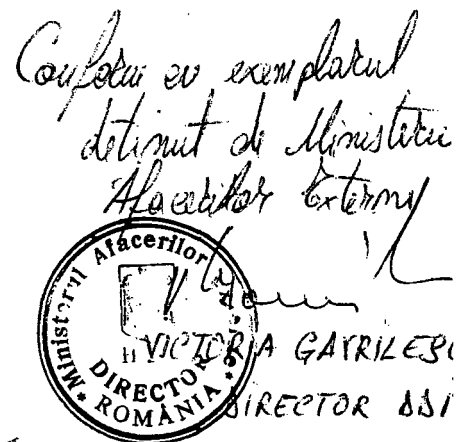 Conform cu exemplarul
deținut de Ministerul
Afacerilor Externe
Ministerul Afacerilor
DIRECTOR
ROMÂNIA
VICTORIA GAVRILESC
DIRECTOR